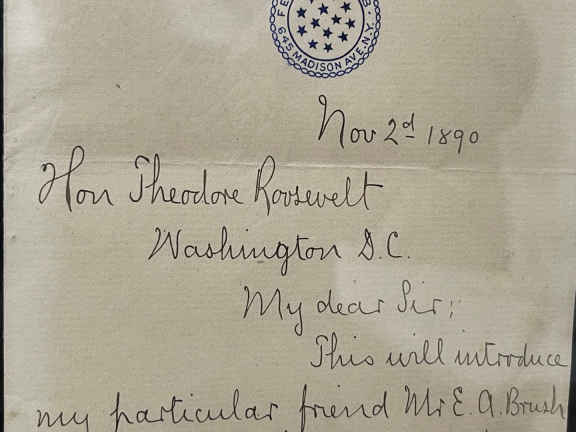 645 MADISON AVE. N.Y.
Nov 2d 1890
Hon Theodore Roosevelt
Washington D.C.
My dear Sir;
This will introduce
my particular friend Mr E. A. Brush